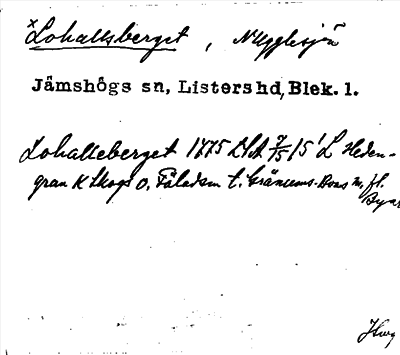 ×Lohallsberget, N Ugglesjön
Jämshögs sn, Listers hd, Blek. l.
Lohalleberget 1775 LSA 7/15 15' L Heden-
gran K Skogs o. Fäladsm t. Gränums-Boas m. fl.
Byar